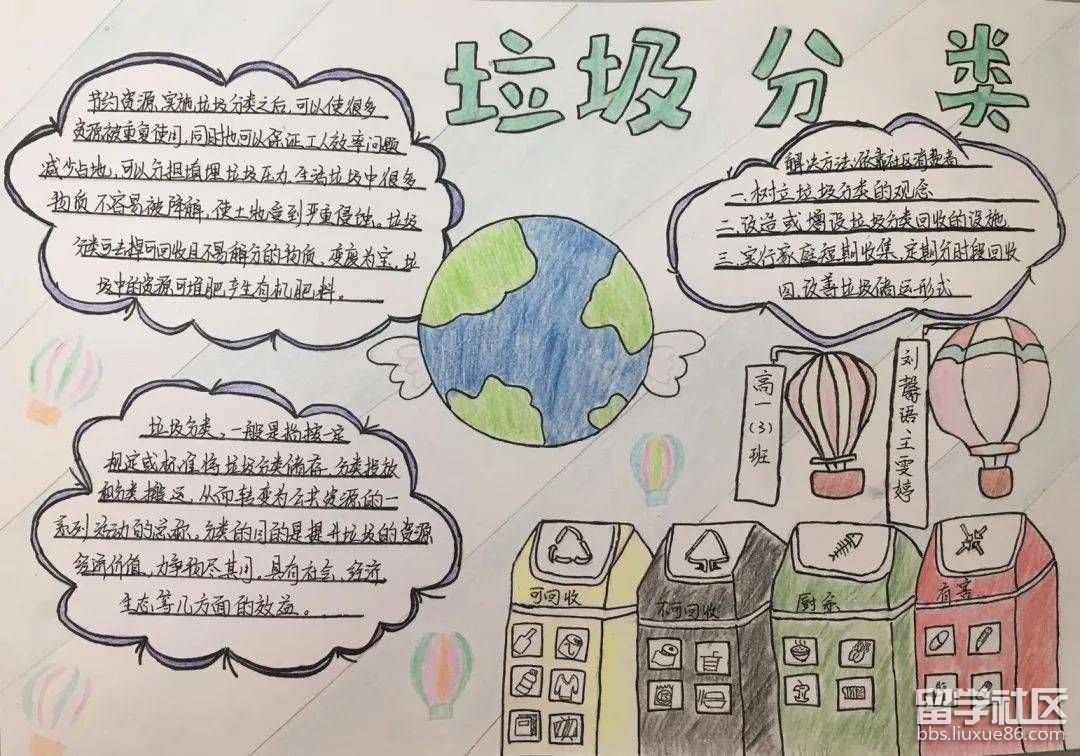 垃圾分类
节约资源,实施垃圾分类之后,可以使很多
资源被重复使用,同时也可以保证工人效率问题
减少占地,可以分担填埋垃圾压力,生活垃圾中很多
物质不容易被降解,使土地受到严重侵蚀。垃圾
分类可去掉可回收且不易解分的物质,变废为宝,垃
圾中的资源可堆肥,产生有机肥料。
解决方法:依靠社区消费者
一.树立垃圾分类的观念
二.改造或增设垃圾分类回收的设施
三.实行家庭短期收集,定期分时段回收
四.改善垃圾储运形式
高一(3)班
刘馨语王雯婷
垃圾分类,一般是指按一定
规定或标准将垃圾分类储存、分类投放
和分类搬运,从而转变为公共资源的一
系列活动的总称。分类的目的是提升垃圾的资源
经济价值,力争物尽其用,具有社会、经济
生态等几方面的效益。
可回收
不可回收
厨余
有害
留学社区
bbs.liuxue86.com